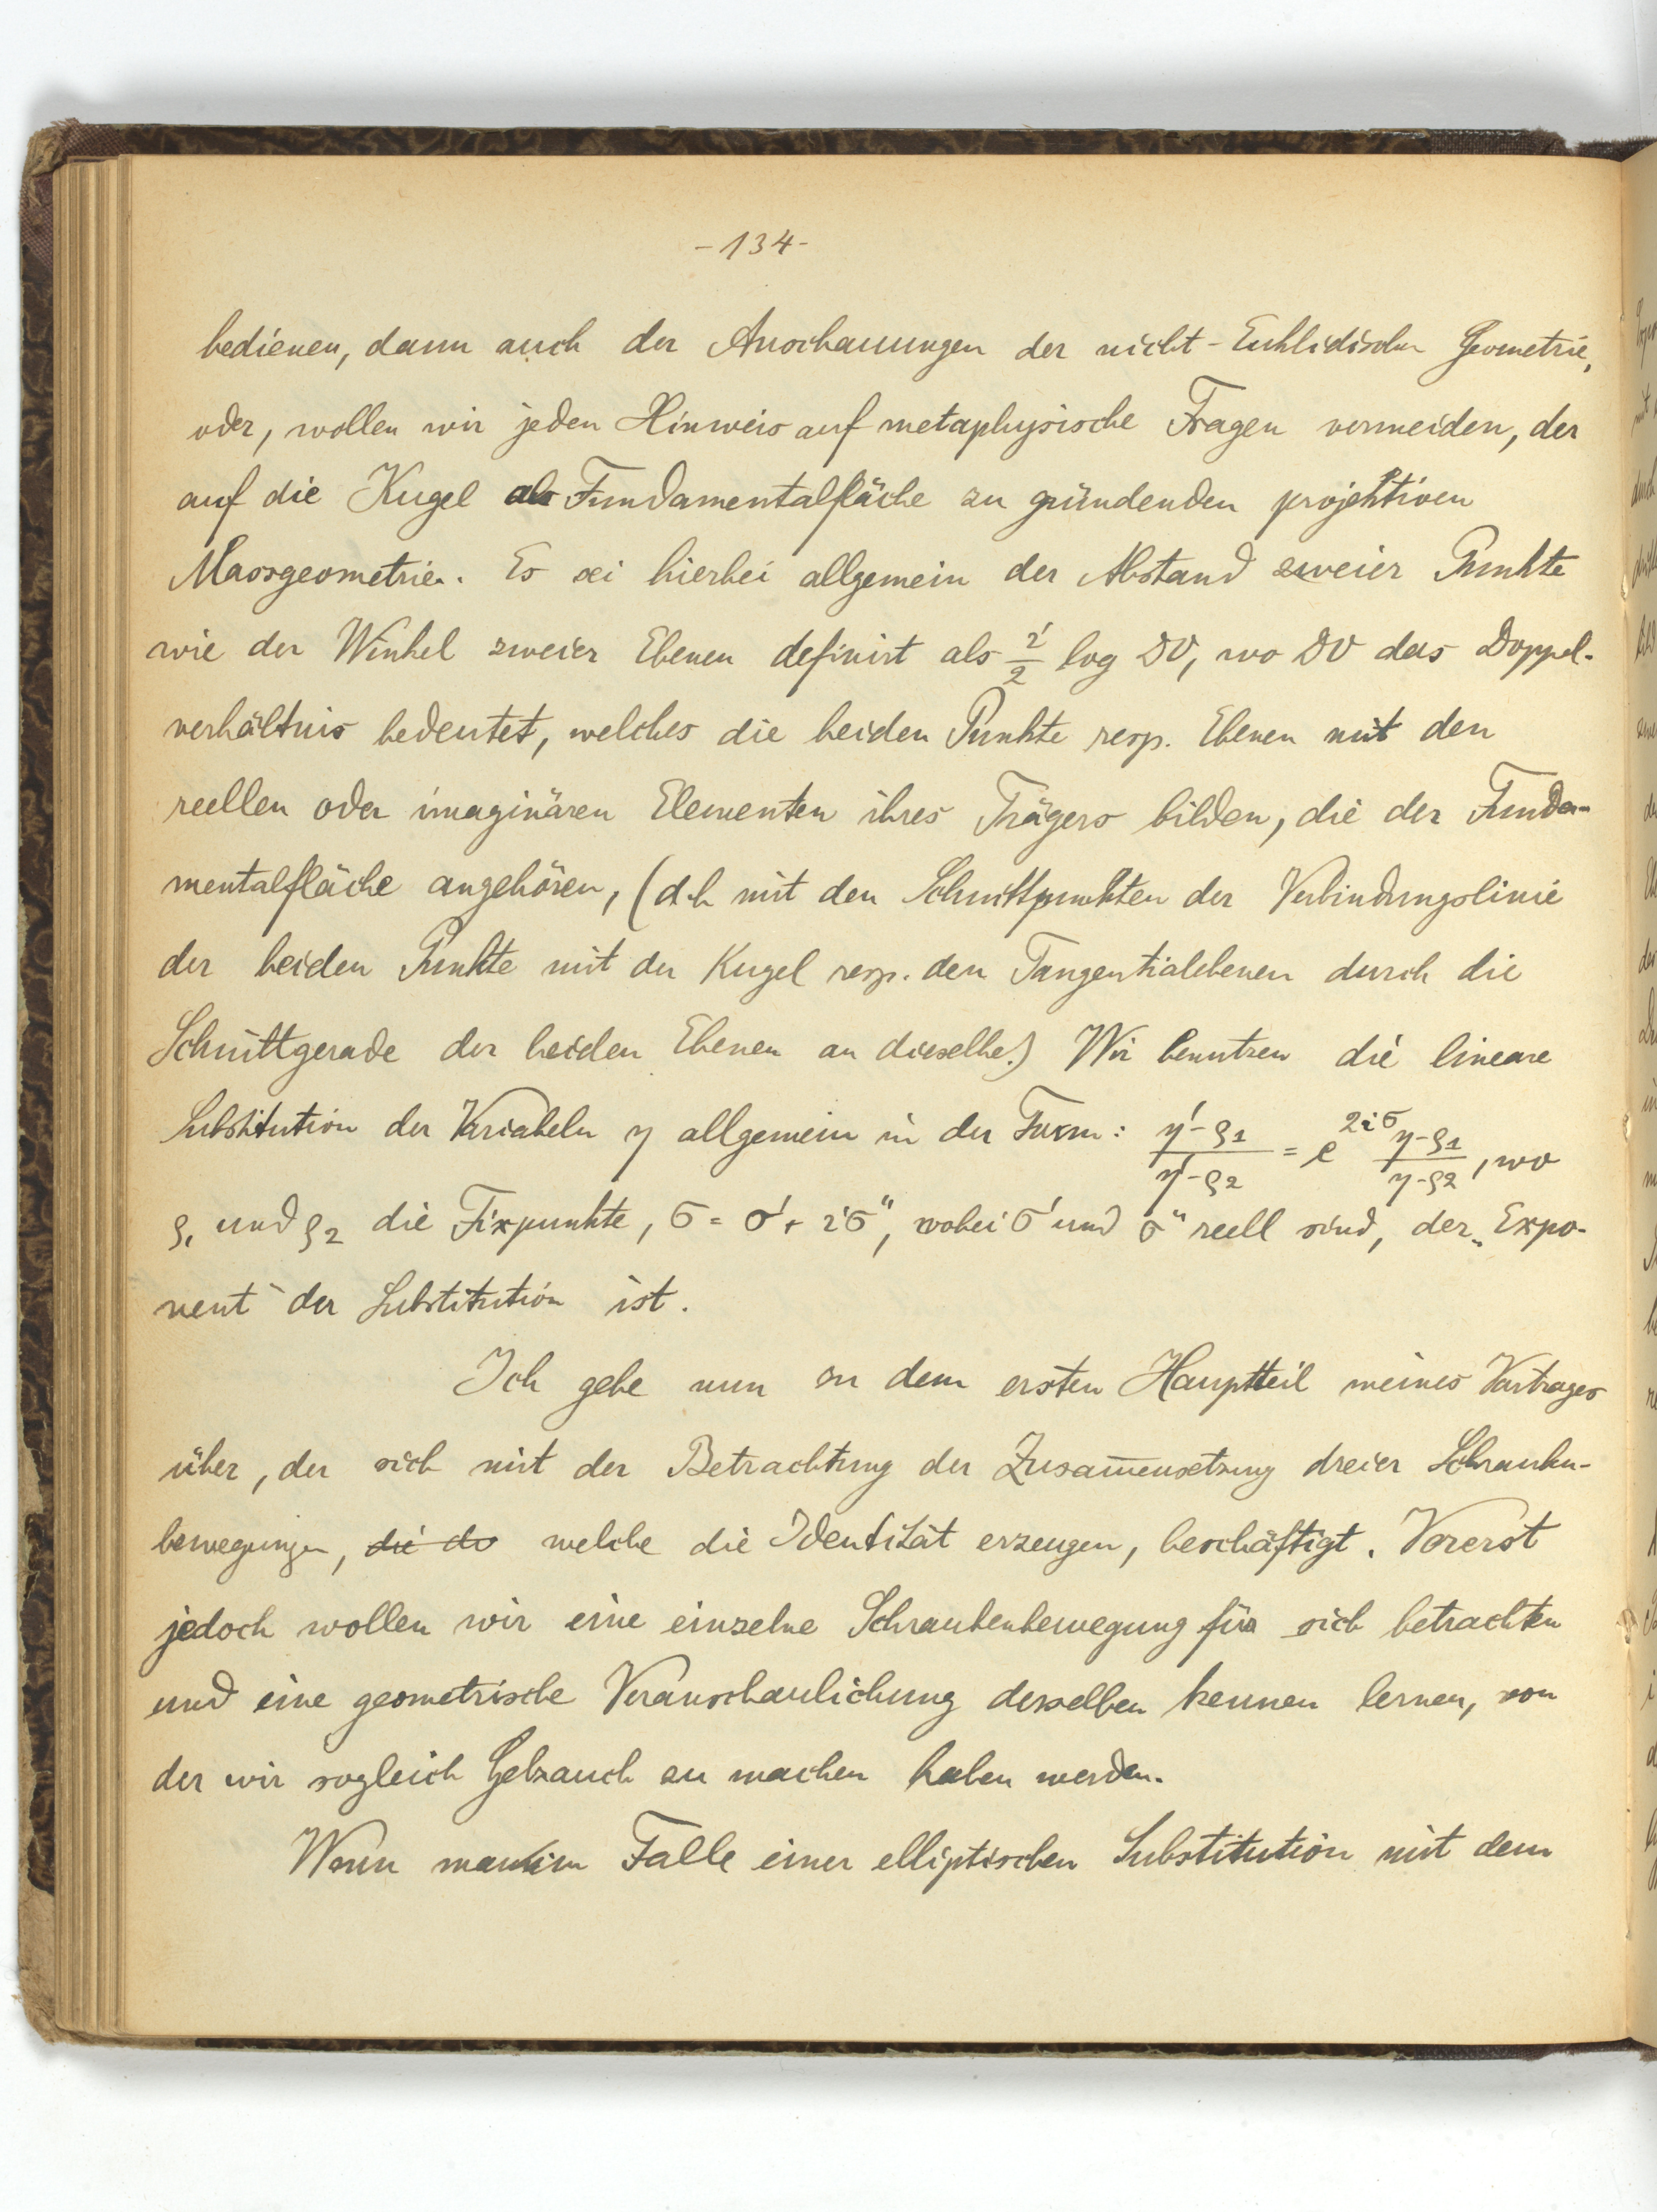 -134-
bedienen, dann auch der Anschauungen der nicht-Euklidischen Geometrie,
oder, wollen wir jeden Hinweis auf metaphysische Fragen vermeiden, der
auf die Kugel als Fundamentalfläche zu gründenden projektiven
Massgeometrie. Es sei hierbei allgemein der Abstand zweier Punkte
wie der Winkel zweier Ebenen definirt als i/2 log DV, wo DV das Doppel-
verhältnis bedeutet, welches die beiden Punkte resp. Ebenen mit den
reellen oder imaginären Elementen ihres Trägers bilden, die der Funda-
mentalfläche angehören, (d.h mit den Schnittpunkten der Verbindungslinie
der beiden Punkte mit der Kugel resp. den Tangentialebenen durch die
Schnittgerade der beiden Ebenen an dieselbe.) Wir benutzen die lineare
Substitution der Variabeln η allgemein in der Form: (η'-ϱ1)/(η'-ϱ2) = e^{2iσ} (η-ϱ1)/(η-ϱ2), wo
ϱ1 und ϱ2 die Fixpunkte, σ = σ' + iσ", wobei σ' und σ" reell sind, der „Expo-
nent" der Substitution ist.
Ich gehe nun zu dem ersten Hauptteil meines Vortrages
über, der sich mit der Betrachtung der Zusam̅ensetzung dreier Schrauben-
bewegungen, die di welche die Identität erzeugen, beschäftigt. Vorerst
jedoch wollen wir eine einzelne Schraubenbewegung für sich betrachten
und eine geometrische Veranschaulichung derselben kennen lernen, von
der wir sogleich Gebrauch zu machen haben werden.
Wenn man im Falle einer elliptischen Substitution mit dem